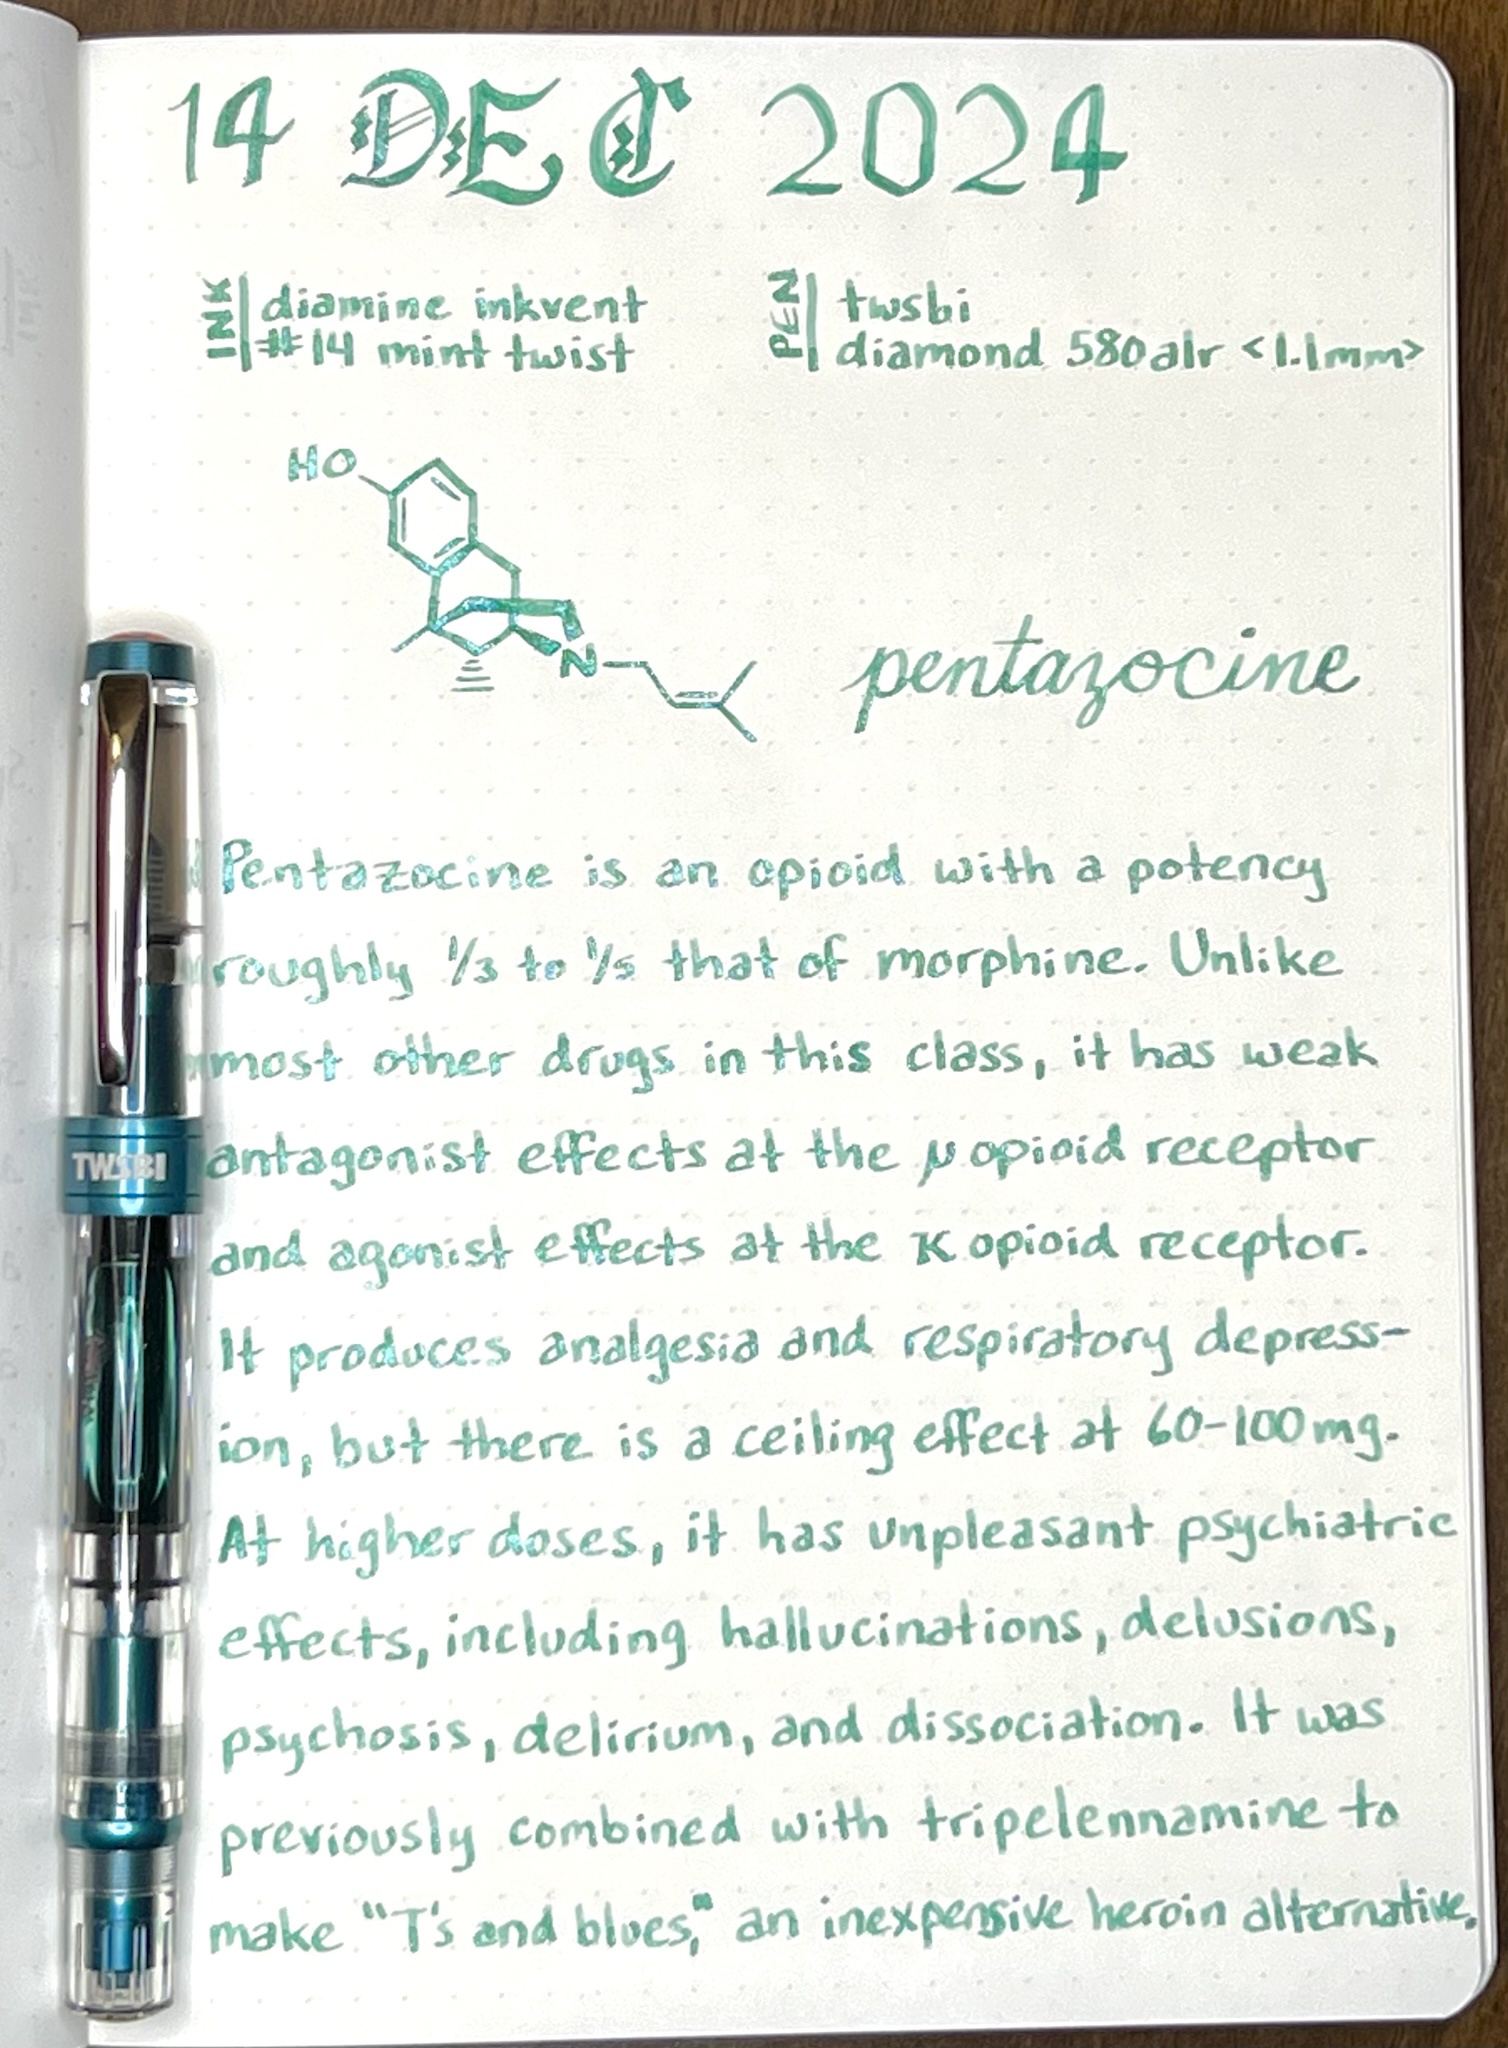 14 DEC 2024
INK diamine inkvent
#14 mint twist
PEN twsbi
diamond 580 alr <1.1mm>
HO
N
pentazocine
Pentazocine is an opioid with a potency
roughly 1/3 to 1/5 that of morphine. Unlike
most other drugs in this class, it has weak
antagonist effects at the μ opioid receptor
and agonist effects at the κ opioid receptor.
It produces analgesia and respiratory depress-
ion, but there is a ceiling effect at 60-100mg.
At higher doses, it has unpleasant psychiatric
effects, including hallucinations, delusions,
psychosis, delirium, and dissociation. It was
previously combined with tripelennamine to
make "T's and blues," an inexpensive heroin alternative.
TWSBI